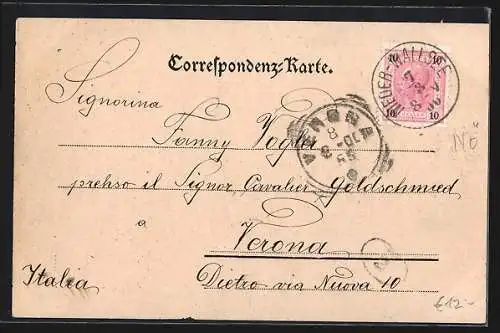 Correspondenz-Karte.
NIEDER-WALLSEE
10 10
Signorina
VERONA
8
99
NÖ
Fanny Vogler
presso il Signor Cavalier Goldschmied
a
Verona
Italia
Dietro via Nuova 10
€12.-